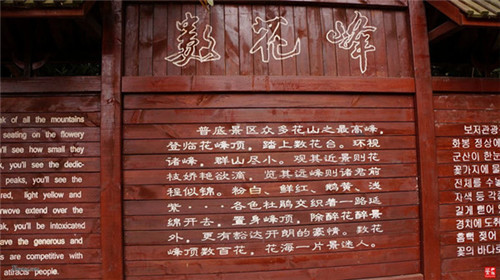 数花峰
普底景区众多花山之最高峰,
登临花峰顶, 踏上数花台。环视
诸峰, 群山尽小。观其近景则花
枝娇艳欲滴, 览其远峰则诸君前
程似锦。粉白、鲜红、鹅黄、浅
紫····各色杜鹃交织着一路延
绵开去, 置身峰顶, 除醉花醉景
外, 更有豁达开朗的豪情。数花
峰顶数百花, 花海一片景迷人。
ak of all the mountains
seating on the flowery
'll see how small they
ok, you'll see the dedic-
peaks, you'll see the
red, light yellow and
rwove extend over the
ak, you'll be intoxicated
have the generous and
s are competitive with
attracts people.
보저관광
화봉 정상에
군산이 한눈
꽃가지에 물
전체를 수
자색 등 각종
길게 뻗어
경치에 도취
흠뻑 젖어
꽃의 바다